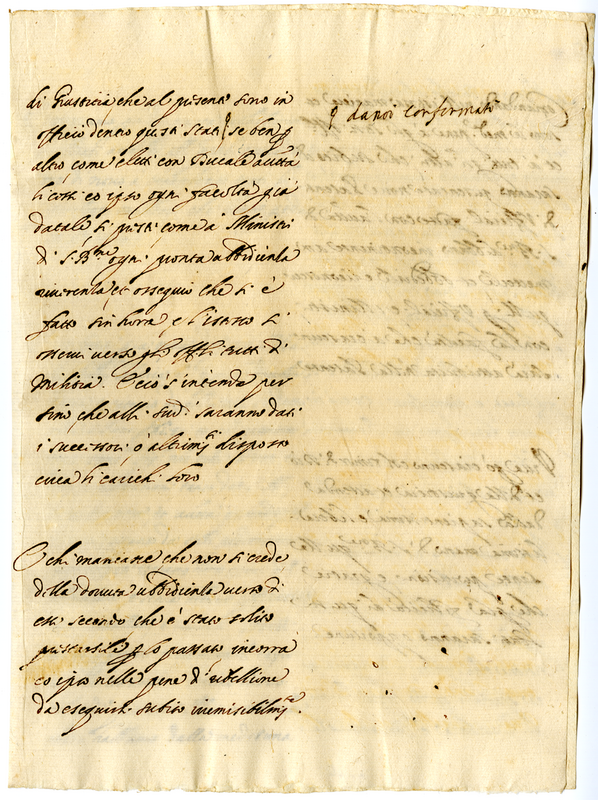 di Giustitia, che al presente sono in
officio dentro questi stati, se ben p
altro come eletti con Ducale autta
li cessi eo ipso ogni facoltà già
datale si presti come a Ministri
di S. Bne ogni pronta ubbidienza
riverenza, et ossequio che si è
fatto sin hora, e l'istesso si
osservi verso gli offli tutti di
Militia. E ciò s'intenda per
sino, che alli sudi saranno dati
i successori, ò altrimte disposto
circa li carichi loro
p da noi confirmati
E chi mancasse che non si crede
della dovuta ubbidienza verso di
essi secondo che è stato solito
prestarsile p lo passato incorra
eo ipso nelle pene di ribellione
da eseguirsi subito irremisibilmte.